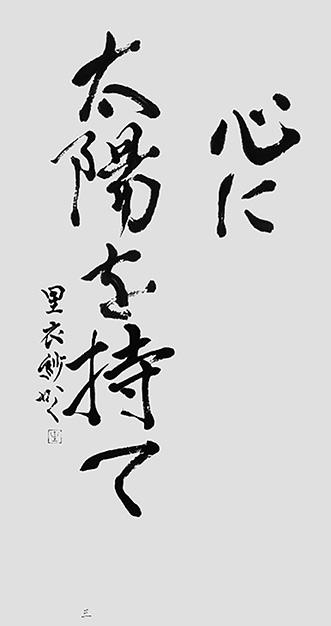 心に
太陽を持て
里衣紗かく
三